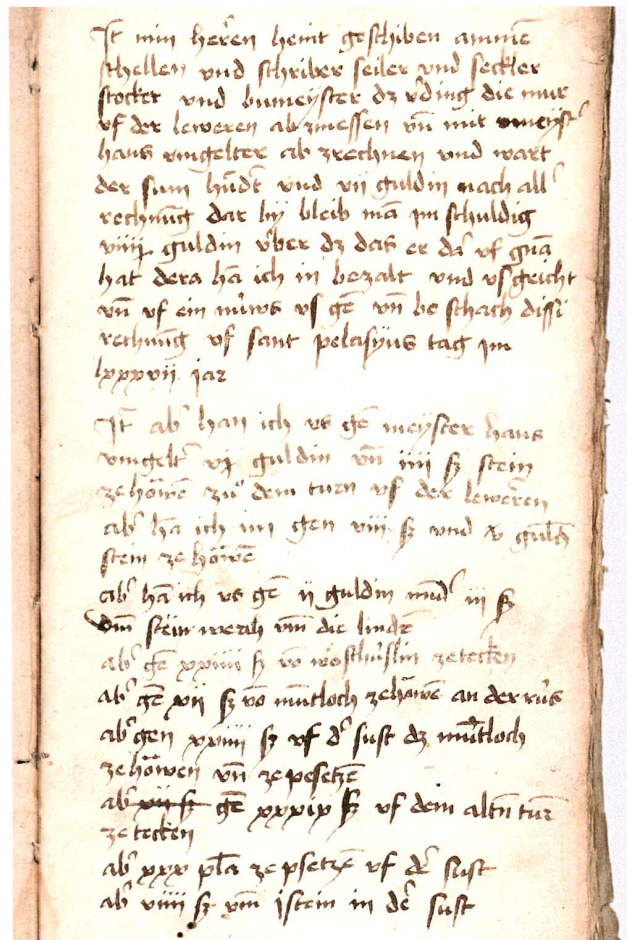 It min herren heint geschiben ammē
schellen und schriber seiler und seckler
stocker und bumeyster dz v'ding die mur
uf der leweren ab zmessen vn̄ mit meyst'
hans vngelter ab zrechnen und wart
der sum hūd't und vii guldin nach all'
rechnūg dar by bleib mā im schuldig
viiij guldin über dz das er dā uf gnā
hat dera hā ich in bezalt und usgericht
vn̄ uf ein nüws us gē vn̄ beschach dissi
rechnūg uf sant pelasyus tag im
lxxxvii jar
It ab' han ich us gē meyster hans
vngelt' vj guldin vn̄ iiii ß stein
ze höwē zů dem turn uf der leweren
ab' hā ich im gen viii ß und v guld'
stein ze höwē
ab' hā ich us gē ii guldin mīd' iii ß
vm̄ stein werch vm̄ die linde
ab' gē xxiiii ß vō ze tecken
ab' gē xii ß vō mūtloch ze höwē an der rüs
ab' gen xxiiii ß uf d' sust dz mūtloch
ze höwen vn̄ ze pesetzē
ab' gē xxxix ß uf dem altn turē
ze tecken
ab' xxx pla ze psetzē uf d' sust
ab' viiii ß vm̄ istein in d' sust